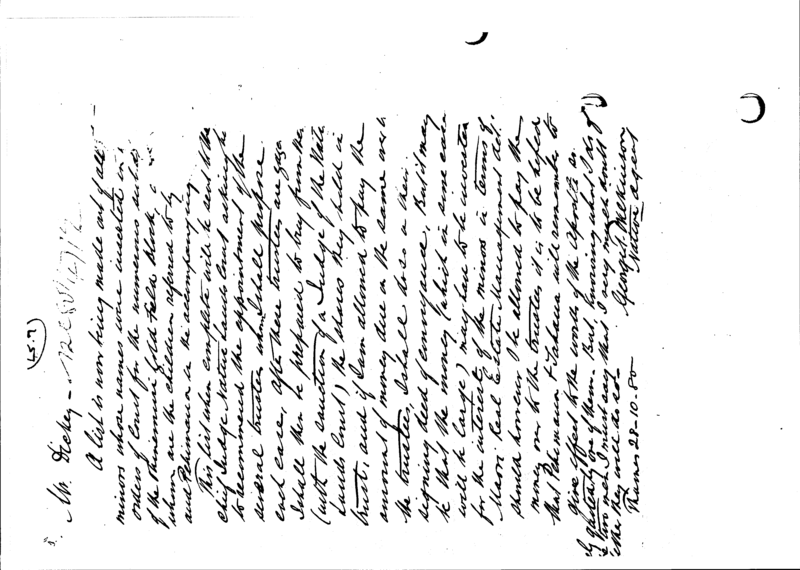 (45.7)
Mr. Dickey -
A list is now being made out of all
minors whose names were inserted in
orders of Court for the numerous
of the Ohinemuri Goldfields block,
whom are the children referred to by
and Pekamana in the accompanying
This list when complete will be sent to the
Chief Judge Native Lands Court asking he
to recommend the appointment of the
several trustees whom I shall propose
each case, after these trustees are gaze
I shall then be prepared to buy from the
(with the sanction of a Judge of the Native
Lands Court) the shares they hold in
trust, and if I am allowed to pay the
amount of money due on the same
the trustees, I shall do so on their
signing deed of conveyance. But it may
be that the money (which in some cases
will be large) may have to be invested
for the interests of the minors in terms of
Maori Real Estate Management Act.
Should however I be allowed to pay the
money over to the trustees it is to be hoped
that Pekamana & Tahana will remember to
give effect to the words of the Apostle as
quoted by one of them. But, knowing what I do of
the two men I must say that I very much doubt
whether they will do so.-
George T. Wilkinson
Native Agent
Thames 28-10.80